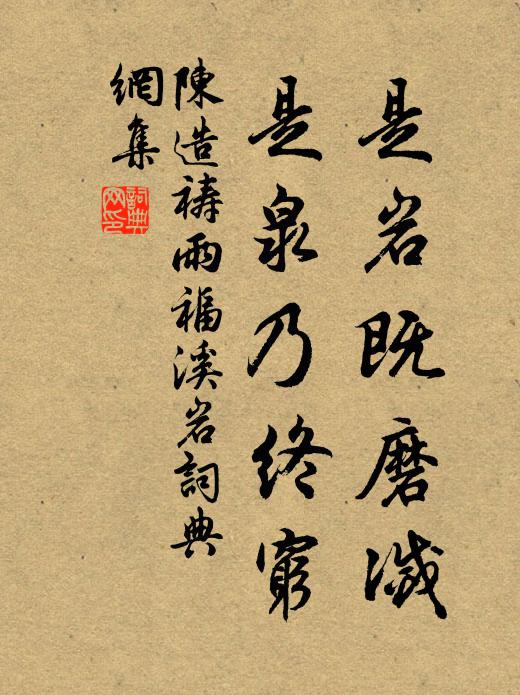 是岩既磨滅
是泉乃終窮
陳造禱雨福溪岩詞典
網集
詞典
网印